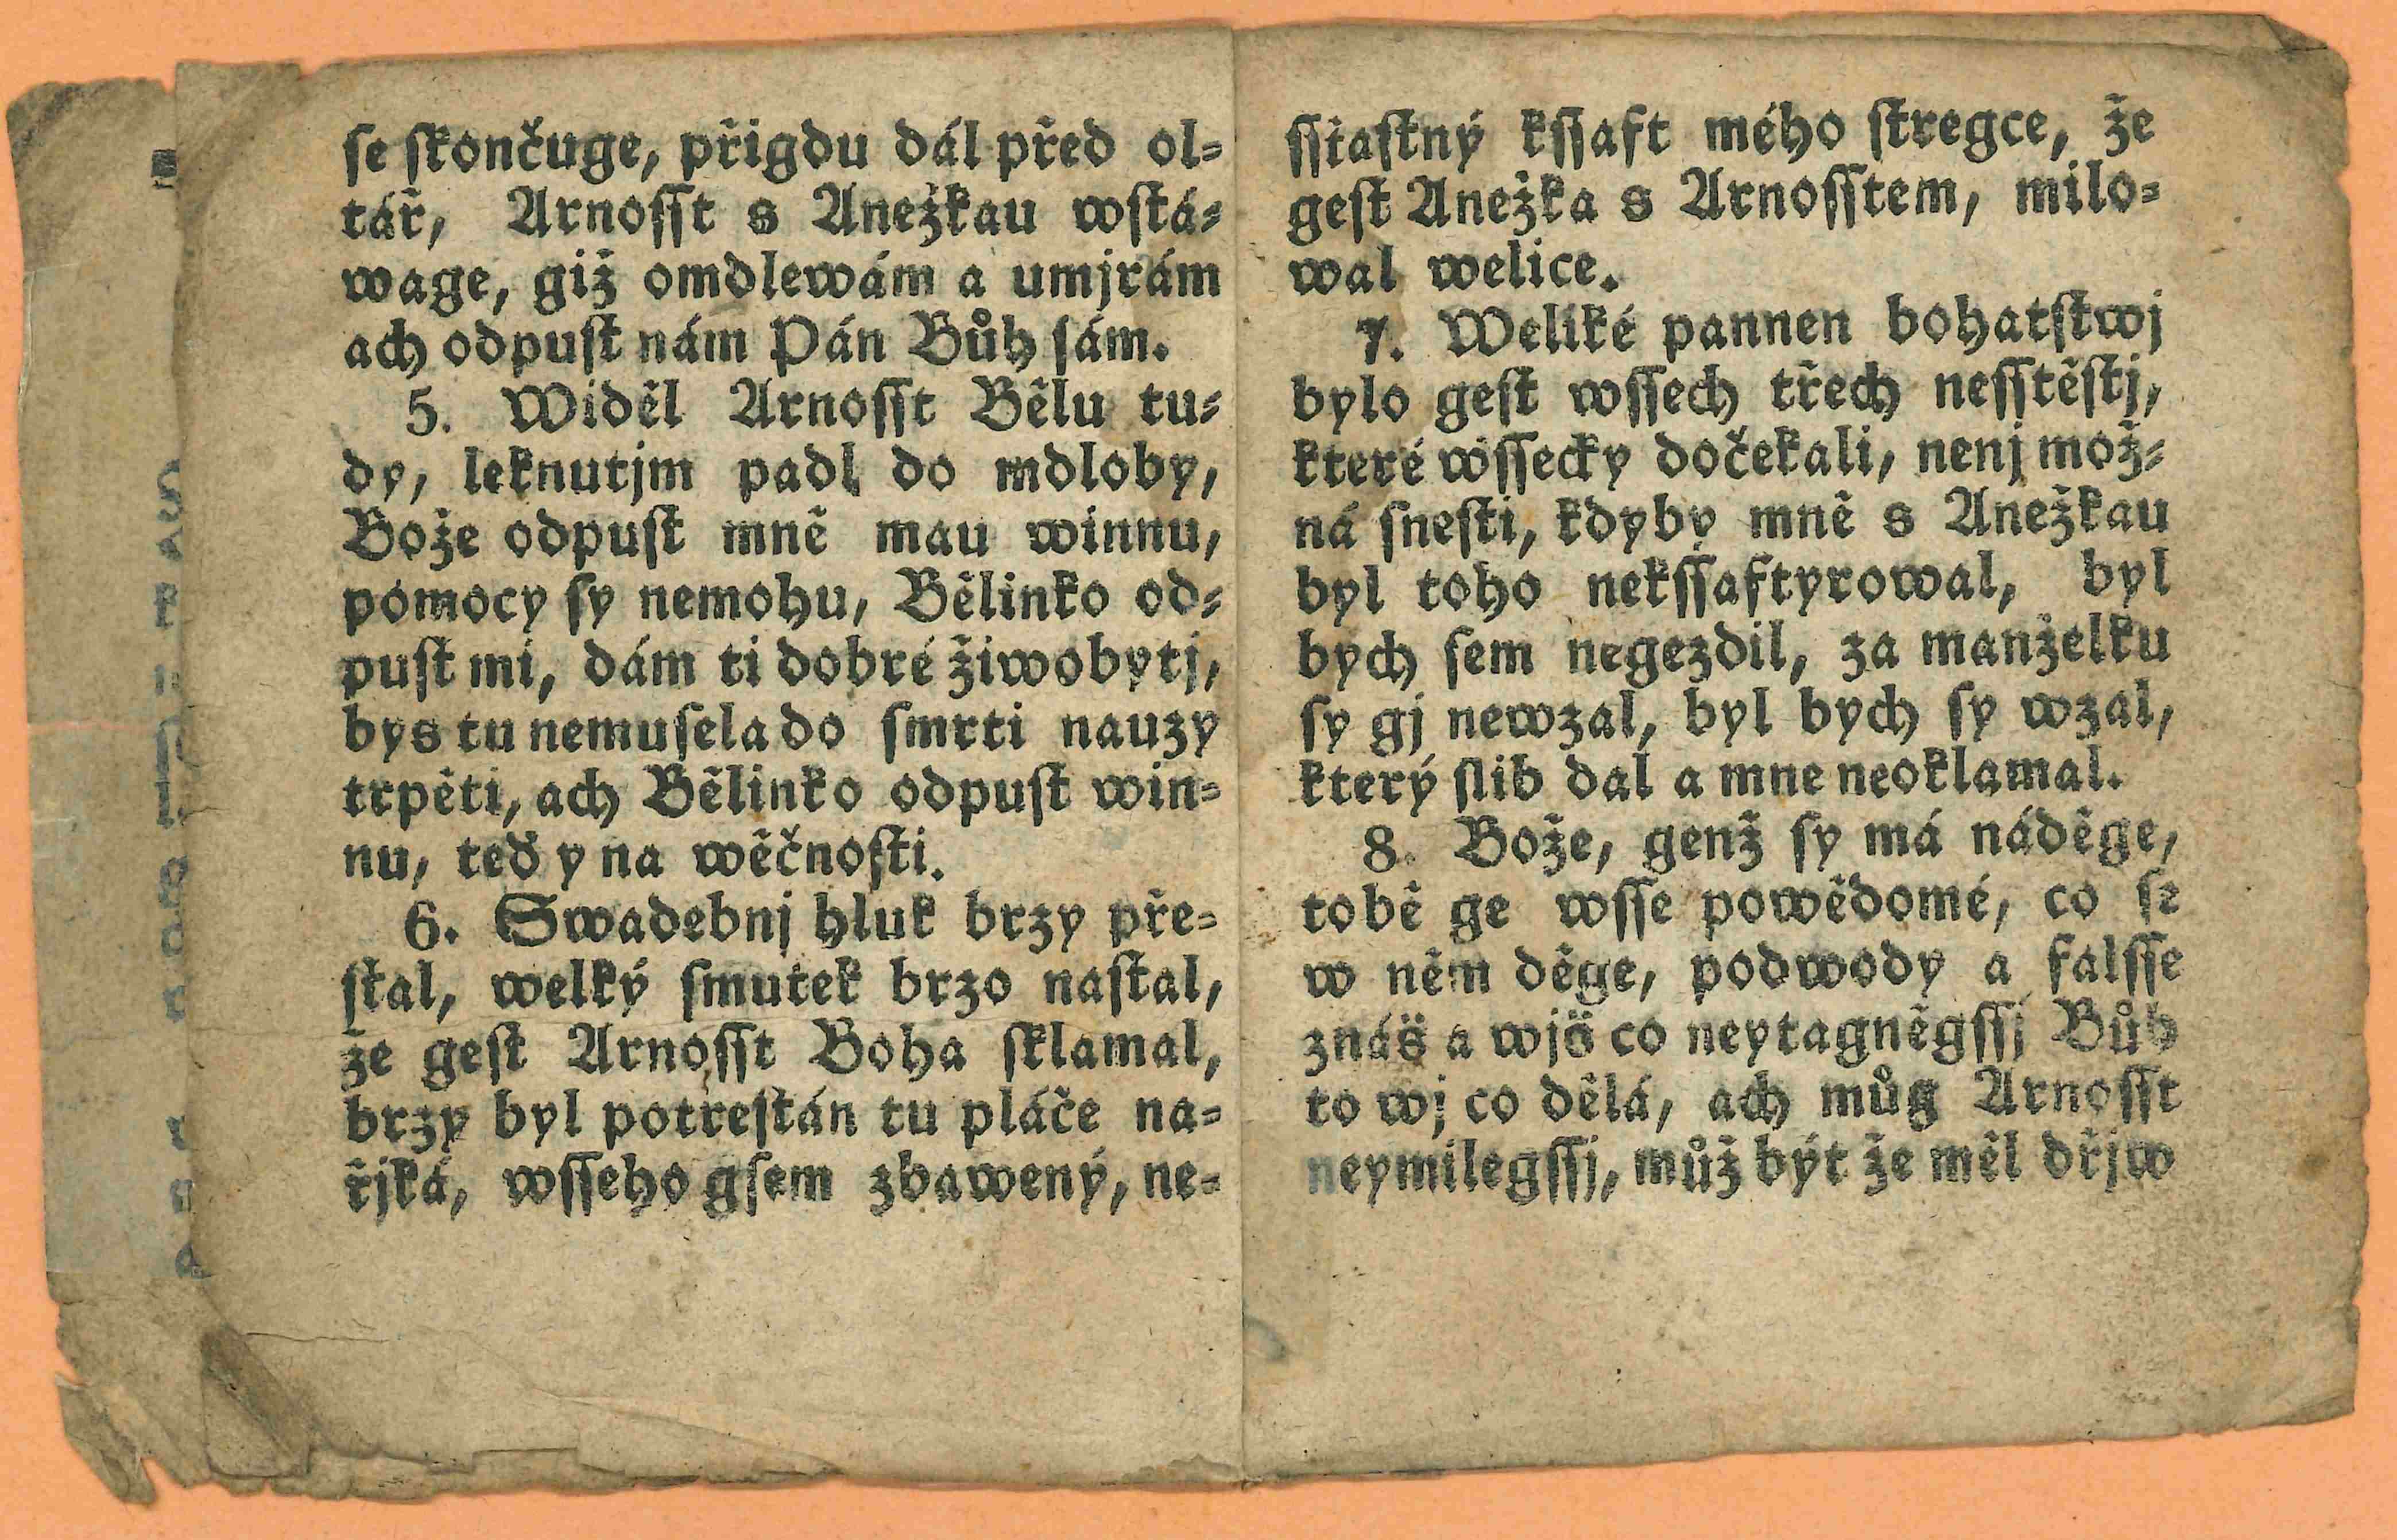 ſe ſkončuge, přigdu dál před ol=
tář, Arnoſſt s Anežkau wſtá=
wage, giž omdlewám a umjrám
ach odpuſt nám Pán Bůh ſám.
5. Widěl Arnoſſt Bělu tu=
dy, leknutjm padl do mdloby,
Bože odpuſt mně mau winnu,
pomocy ſy nemohu, Bělinko od=
puſt mi, dám ti dobré živobytj,
bys tu nemuſela do ſmrti nauzy
trpěti, ach Bělinko odpuſt win=
nu, teď y na wěčnoſti.
6. Swadebnj hluk brzy pře=
ſtal, welký ſmutek brzo naſtal,
že geſt Arnoſſt Boha ſklamal,
brzy byl potreſtán tu pláče na=
řjká, wſſeho gſem zbawený, ne=
ſſtaſtný kſſaft mého ſtregce, že
geſt Anežka s Arnoſſtem, milo=
wal welice.
7. Weliké pannen bohatſtwj
bylo geſt wſſech třech neſſtěſtj,
které wſſecky dočekali, nenj mož=
ná ſneſti, kdyby mně s Anežkau
byl toho nekſſaftyrowal, byl
bych ſem negezdil, za manželku
ſy gj newzal, byl bych ſy wzal,
který ſlib dal a mne neoklamal.
8. Bože, genž ſy má náděge,
tobě ge wſſe powědomé, co ſe
w něm děge, podwody a falſſe
znáš a wjš co neytagněgſſj Bůh
to wj co dělá, ach můg Arnoſſt
neymilegſſj, můž být že měl dřjw